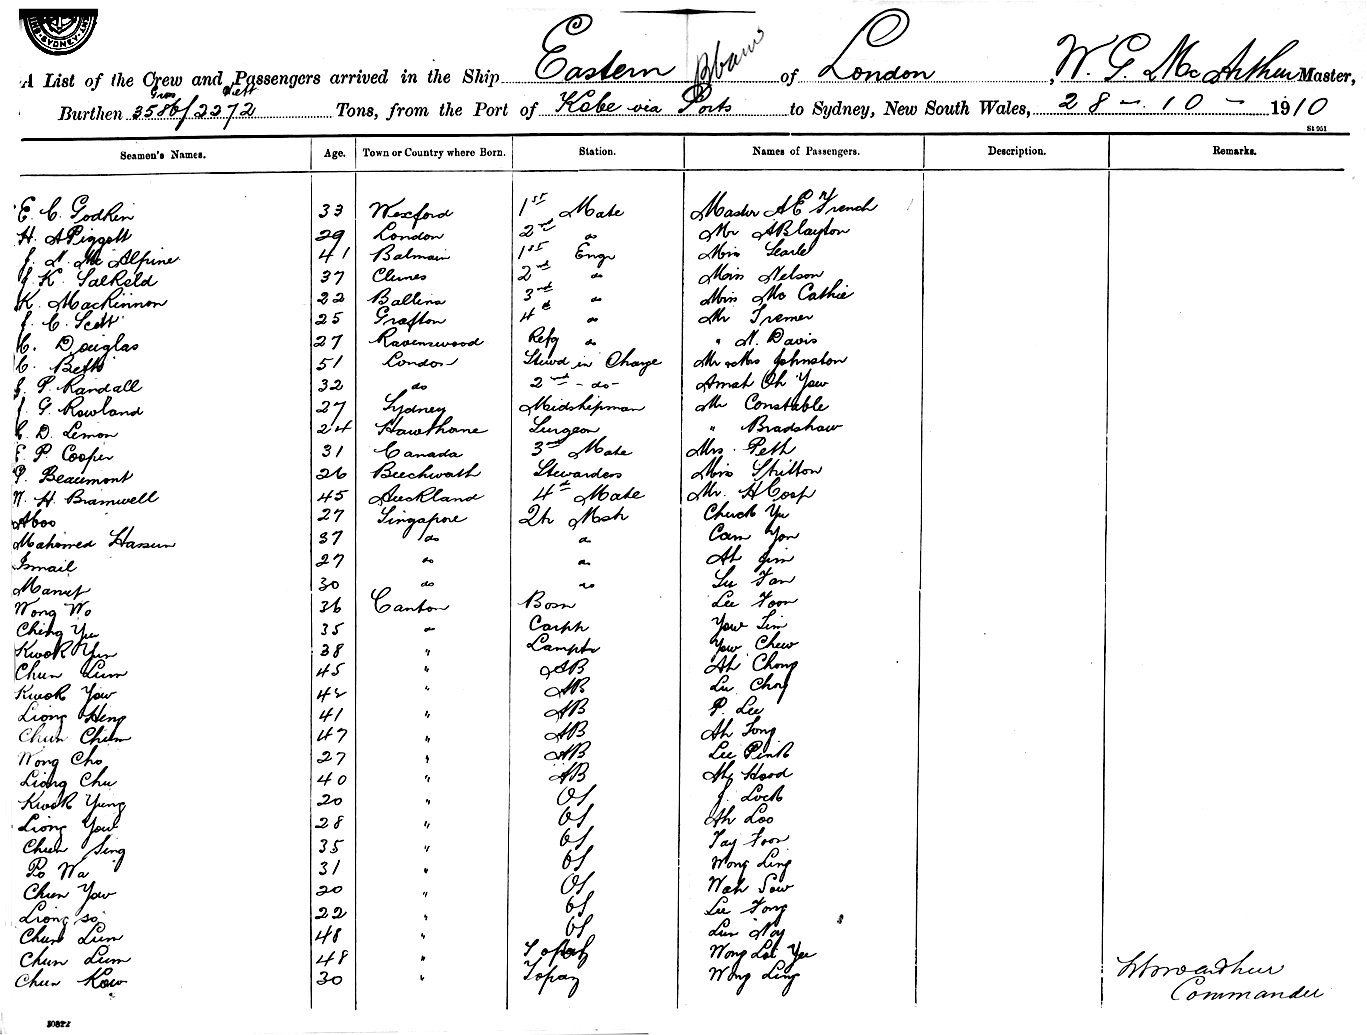 SYDNEY
A List of the Crew and Passengers arrived in the Ship Eastern of London, W. G. Mc Arthur Master,
Gross Nett
Burthen 3586/2272 Tons, from the Port of Kobe via Ports to Sydney, New South Wales, 28 - 10 - 1910
St 951
Seamen's Names. Age. Town or Country where Born. Station. Names of Passengers. Description. Remarks.
E. C. Godkin 33 Wexford 1st Mate Master A E French
H. A Piggott 29 London 2nd do Mr A Blayton
J. Mc Alpine 41 Balmain 1st Engr Miss Searle
J. K. Salkeld 37 Clunes 2nd do Miss Nelson
K. Mackinnon 22 Ballina 3rd do Miss Mc Cathie
J. C. Scott 25 Grafton 4th do Mr Tremer
C. Douglas 27 Ravenswood Refg do " N. Davis
C. Betts 51 London Stewd in Charge Mr & Mrs Johnston
J. P. Randall 32 do 2nd - do - Amah Oh Yow
J. G. Rowland 27 Sydney Midshipman Mr Constable
C. D. Lemon 24 Hawthorne Surgeon " Bradshaw
E. P. Cooper 31 Canada 3rd Mate Mrs Peth
P. Beaumont 26 Beechworth Stewardess Miss Stritton
N. H Bramwell 45 Auckland 4th Mate Mr. H Cosp
Aboo 27 Singapore Qr Mstr Chuck Yu
Mahomed Hassun 37 do do Cam Yon
Ismail 27 do do Ah Jim
Manuf 30 do do Lu Fan
Wong Wo 36 Canton Bosn Lee Foon
Ching Yu 35 do Carptr Yow Lim
Kwok Yun 38 " Lamptr Yow Chew
Chun Lum 45 " AB Ah Chong
Kwok Yow 42 " AB Lu Choy
Liong Heng 41 " AB P. Lee
Chun Chun 47 " AB Ah Song
Wong Cho 27 " AB Lee Pink
Liong Chu 40 " AB Ah Hood
Kwok Yung 20 " OS J. Lock
Liong Yow 28 " OS Ah Loo
Chun Sing 35 " OS Tay Foon
Po Wa 31 " OS Wong Ling
Chun Yow 20 " OS Wah Sow
Liong so 22 " OS Lee Fong
Chun Lum 48 " OS Lum Noy
Chun Lum 48 " Topaz Wong Lai Yee
Chun Kow 30 " Topaz Wong Ling
W G McArthur
Commander